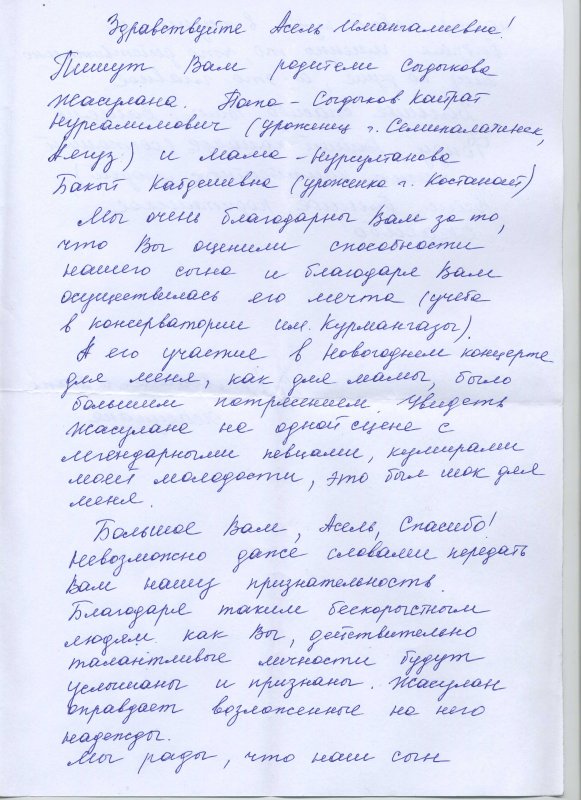 Здравствуйте Асель Имангалиевна!
Пишут Вам родители Сыдыкова
Жасулана. Папа - Сыдыков Кайрат
Нурсалимович (уроженец г. Семипалатинск,
Аягуз) и мама - Нурсултанова
Бакыт Кабдешевна (уроженка г. Костанай)
Мы очень благодарны Вам за то,
что Вы оценили способности
нашего сына и благодаря Вам
осуществилась его мечта (учеба
в консерватории им. Курмангазы).
А его участие в Новогоднем концерте
для меня, как для мамы, было
большим потрясением. Увидеть
Жасулана на одной сцене с
легендарными певцами, кумирами
моей молодости, это был шок для
меня.
Большое Вам, Асель, Спасибо!
Невозможно даже словами передать
Вам нашу признательность.
Благодаря таким бескорыстным
людям как Вы, действительно
талантливые личности будут
услышаны и признаны. Жасулан
оправдает возложенные на него
надежды.
Мы рады, что наш сын